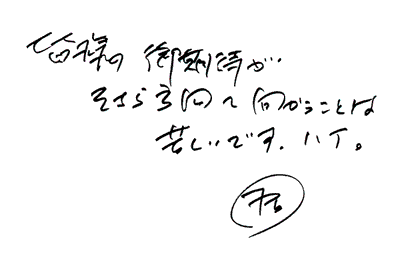 皆様の御期待が…
そちら方向へ向かうことは
苦しいです、ハイ。